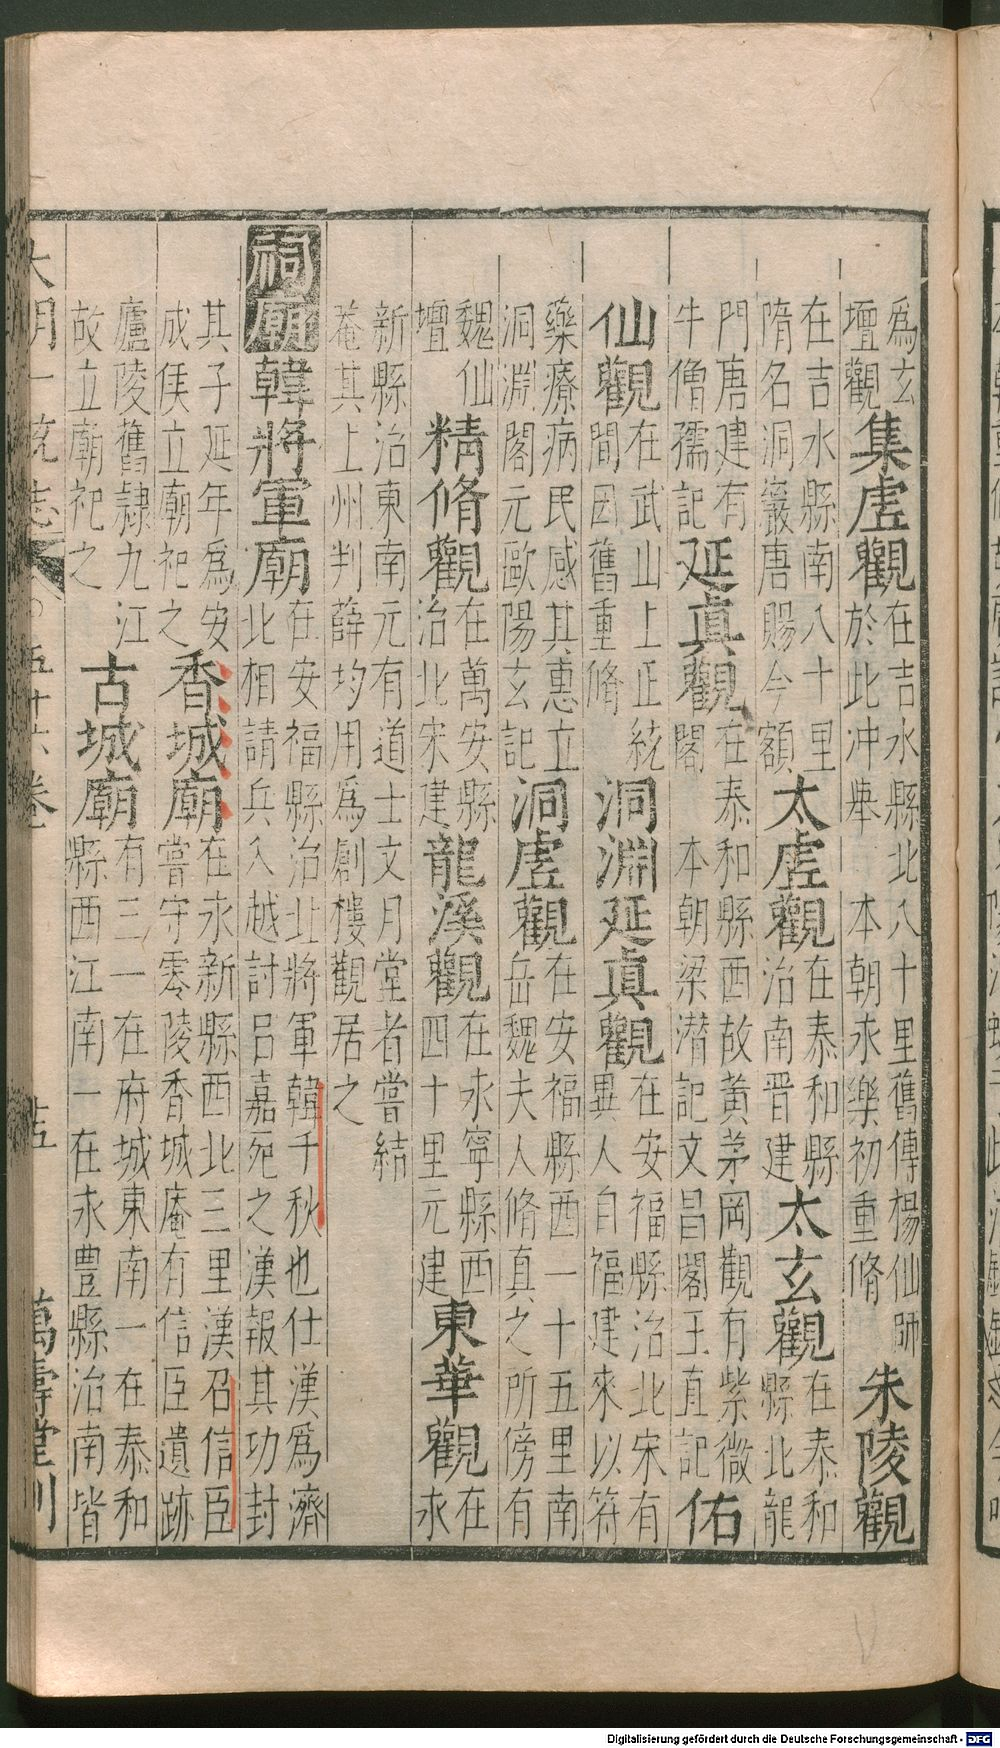 為玄
壇觀
集虛觀
在吉水縣北八十里舊傳楊仙師
於此冲舉　本朝永樂初重脩
朱陵觀
在吉水縣南八十里
隋名洞巖唐賜今額
太虛觀
在泰和縣
治南晋建
太玄觀
在泰和
縣北龍
門唐建有
牛僧孺記
延真觀
在泰和縣西故黃茅岡觀有紫微
閣　本朝梁潛記文昌閣王直記
佑
仙觀
在武山上正統
間因舊重脩
洞淵延真觀
在安福縣治北宋有
異人自福建來以符
藥療病民感其惠立
洞淵閣元歐陽玄記
洞虛觀
在安福縣西一十五里南
岳魏夫人脩真之所傍有
魏仙
壇
精脩觀
在萬安縣
治北宋建
龍溪觀
在永寧縣西
四十里元建
東華觀
在
永
新縣治東南元有道士文月堂者嘗結
菴其上州判薛均用為創樓觀居之
祠廟
韓將軍廟
在安福縣治北將軍韓千秋也仕漢為濟
北相請兵入越討吕嘉死之漢報其功封
其子延年為安
成侯立廟祀之
香城廟
在永新縣西北三里漢召信臣
嘗守零陵香城庵有信臣遺跡
廬陵舊隸九江
故立廟祀之
古城廟
有三一在府城東南一在泰和
縣西江南一在永豐縣治南皆
大明一統志
五十六卷
十五
萬壽堂刊
Digitalisierung gefördert durch die Deutsche Forschungsgemeinschaft - DFG